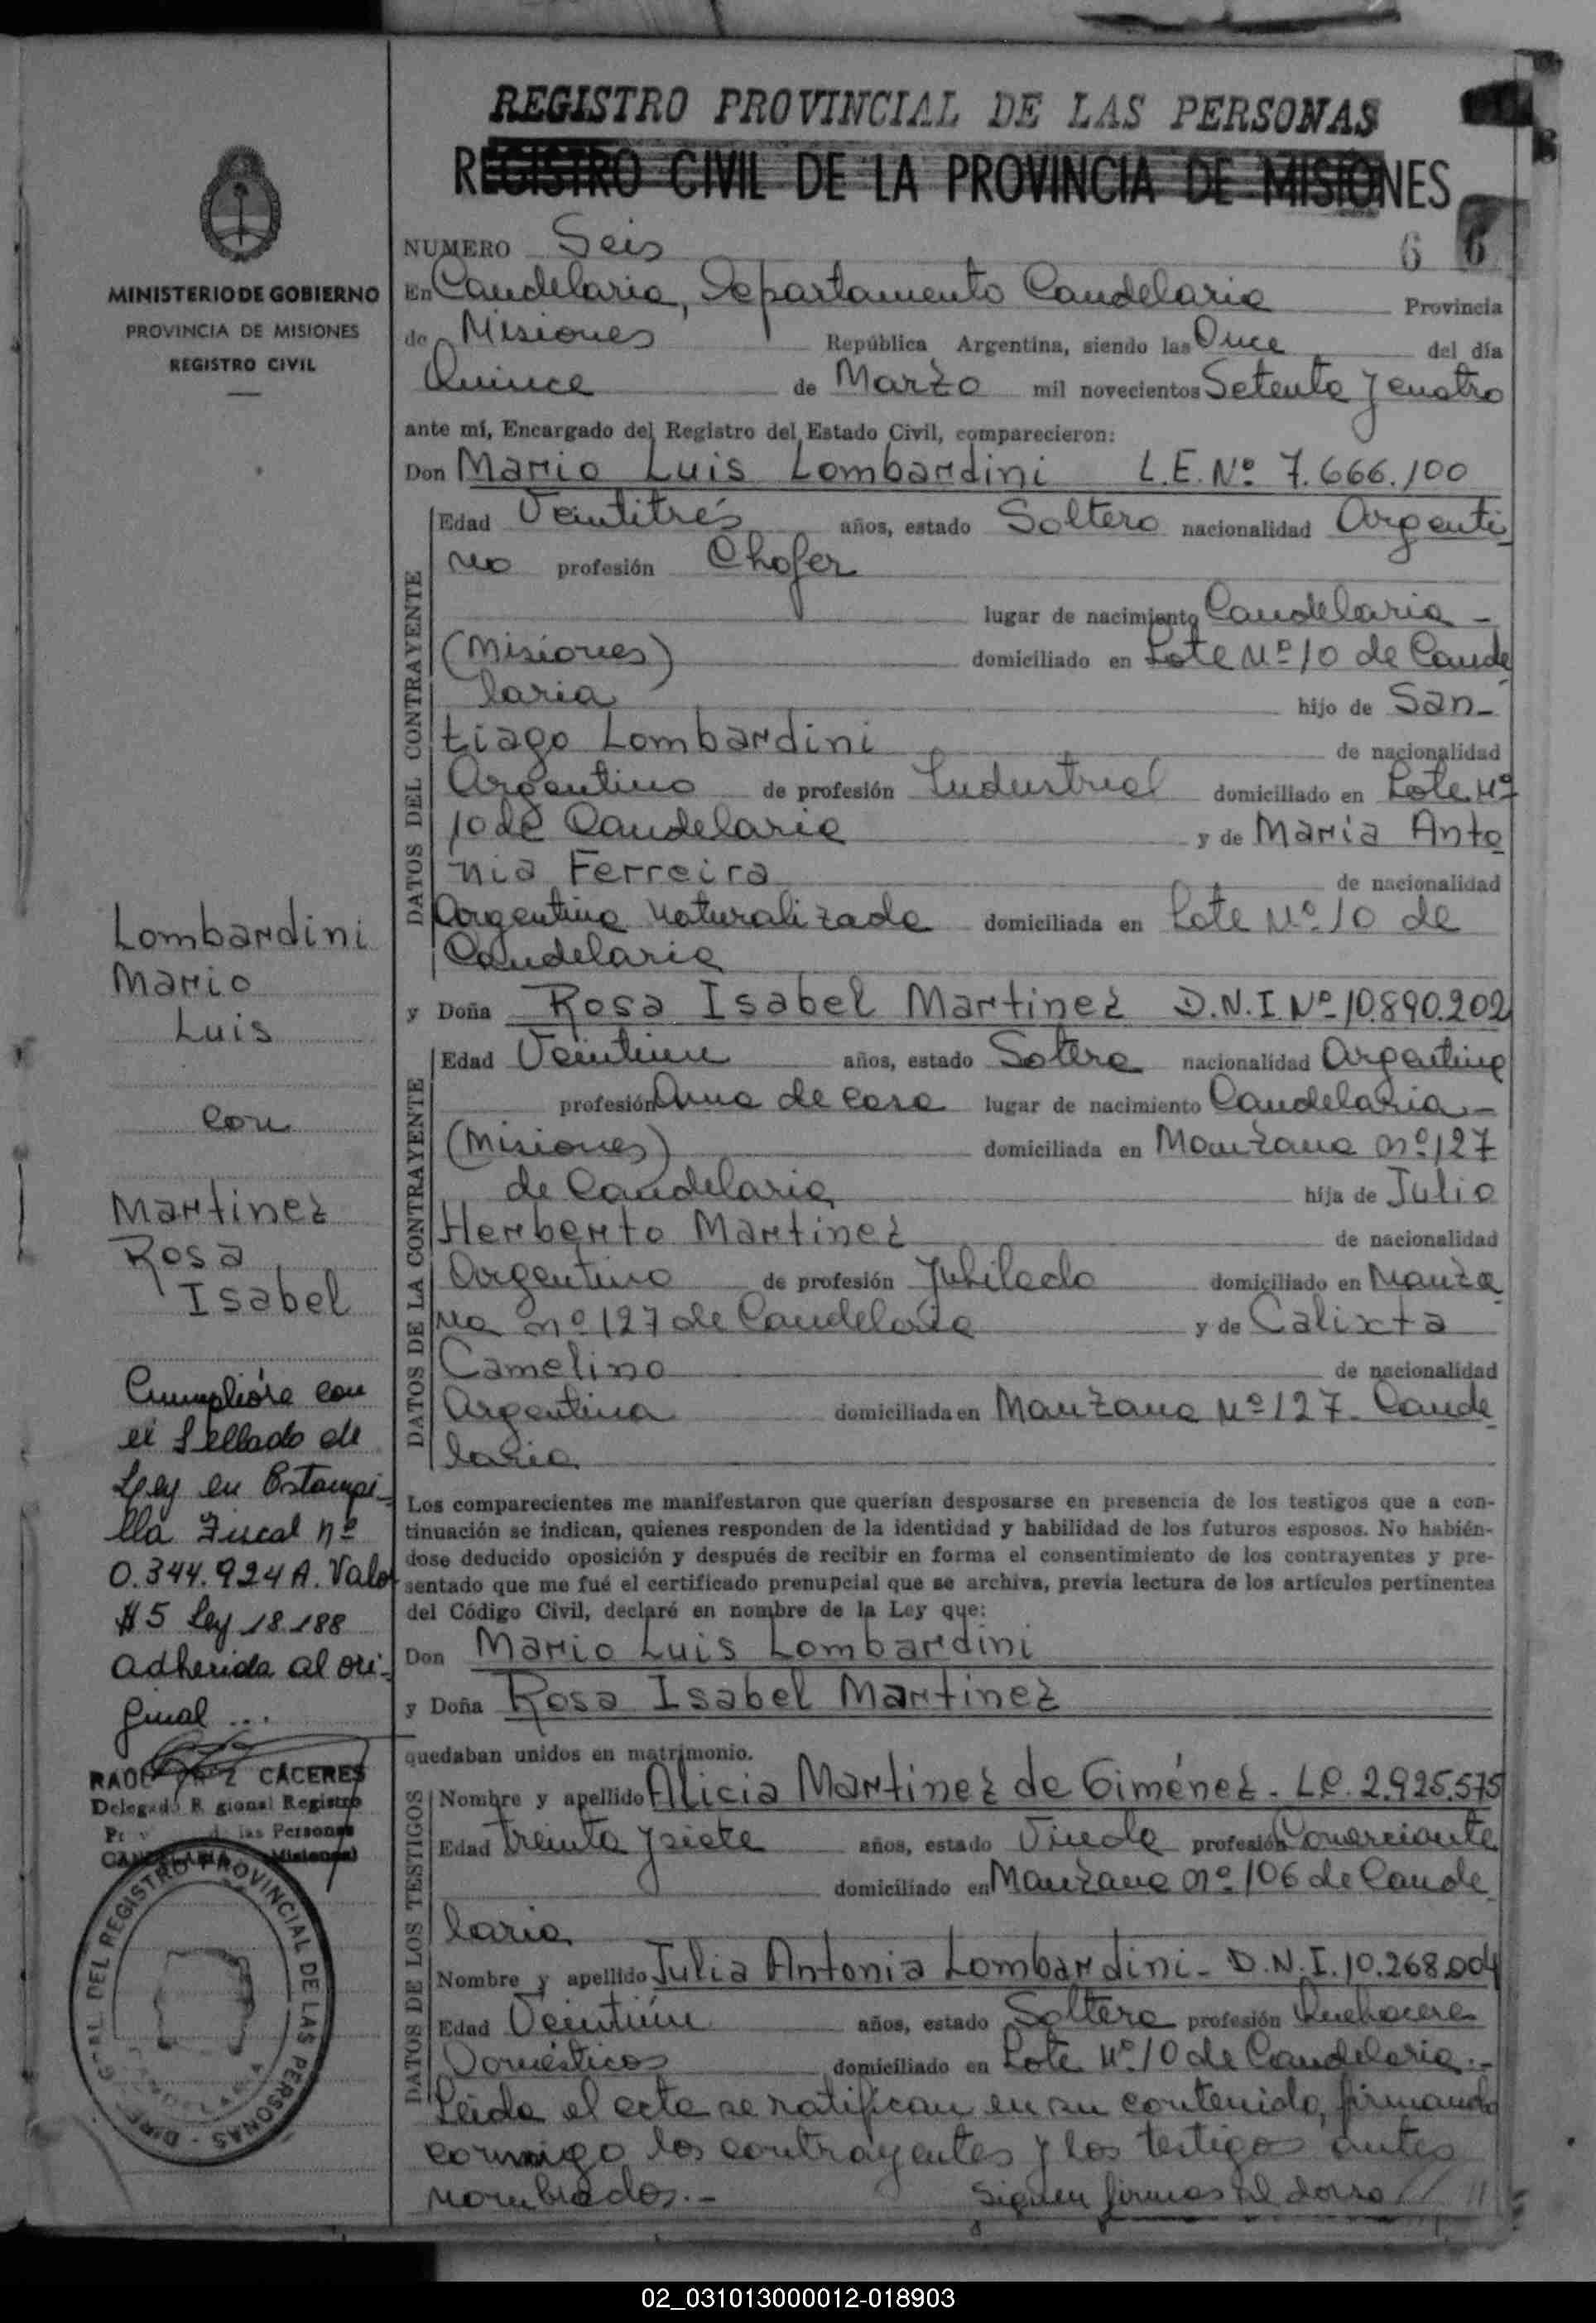 REGISTRO PROVINCIAL DE LAS PERSONAS
REGISTRO CIVIL DE LA PROVINCIA DE MISIONES
MINISTERIO DE GOBIERNO
PROVINCIA DE MISIONES
REGISTRO CIVIL
NUMERO Seis 6 6
En Candelaria, Departamento Candelaria Provincia
de Misiones República Argentina, siendo las Once del día
Quince de Marzo mil novecientos Setenta y cuatro
ante mí, Encargado del Registro del Estado Civil, comparecieron:
Don Mario Luis Lombardini L.E. Nº 7.666.100
DATOS DEL CONTRAYENTE
Edad Veintitrés años, estado Soltero nacionalidad Argenti
no profesión Chofer
lugar de nacimiento Candelaria -
(Misiones) domiciliado en Lote Nº 10 de Cande
laria hijo de San-
tiago Lombardini de nacionalidad
Argentino de profesión Industrial domiciliado en Lote Nº
10 de Candelaria y de Maria Anto
nia Ferreira de nacionalidad
Argentina Naturalizada domiciliada en Lote Nº 10 de
Candelaria
y Doña Rosa Isabel Martinez D.N.I. Nº 10.890.202
DATOS DE LA CONTRAYENTE
Edad Veintiun años, estado Sotera nacionalidad Argentina
profesión Ama de casa lugar de nacimiento Candelaria -
(Misiones) domiciliada en Manzana nº 127
de Candelaria hija de Julio
Herberto Martinez de nacionalidad
Argentino de profesión Jubilado domiciliado en Manza
na nº 127 de Candelaria y de Calixta
Camelino de nacionalidad
Argentina domiciliada en Manzana Nº 127 - Cande
laria
Los comparecientes me manifestaron que querían desposarse en presencia de los testigos que a con-
tinuación se indican, quienes responden de la identidad y habilidad de los futuros esposos. No habién-
dose deducido oposición y después de recibir en forma el consentimiento de los contrayentes y pre-
sentado que me fué el certificado prenupcial que se archiva, previa lectura de los artículos pertinentes
del Código Civil, declaré en nombre de la Ley que:
Don Mario Luis Lombardini
y Doña Rosa Isabel Martinez
quedaban unidos en matrimonio.
DATOS DE LOS TESTIGOS
Nombre y apellido Alicia Martinez de Giménez - L.C. 2.925.575
Edad treinta y siete años, estado Viuda profesión Comerciante
domiciliado en Manzana nº 106 de Cande
laria
Nombre y apellido Julia Antonia Lombardini - D.N.I. 10.268.004
Edad Veintiún años, estado Soltera profesión Quehaceres
Domésticos domiciliado en Lote Nº 10 de Candelaria.-
Leida el acta se ratifican en su contenido, firmando
conmigo los contrayentes y los testigos antes
nombrados.- Siguen firmas al dorso //
Lombardini
Mario
Luis
con
Martinez
Rosa
Isabel
Cumplióse con
el Sellado de
Ley en Estampi-
lla Fiscal nº
0.344.924 A. Valor
$5 Ley 18.188
adherida al ori-
ginal ...
RAUL CÁCERES
Delegado Regional Registro
las Personas
CANDELARIA (Misiones)
DEL REGISTRO PROVINCIAL DE LAS PERSONAS
02_031013000012-018903